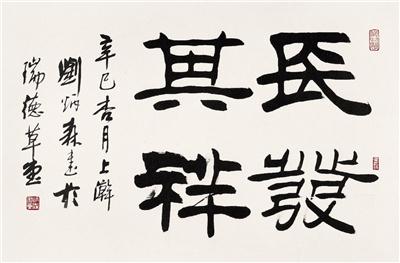 長發
其祥
辛巳杏月上澣
劉炳森書於
瑞德草堂